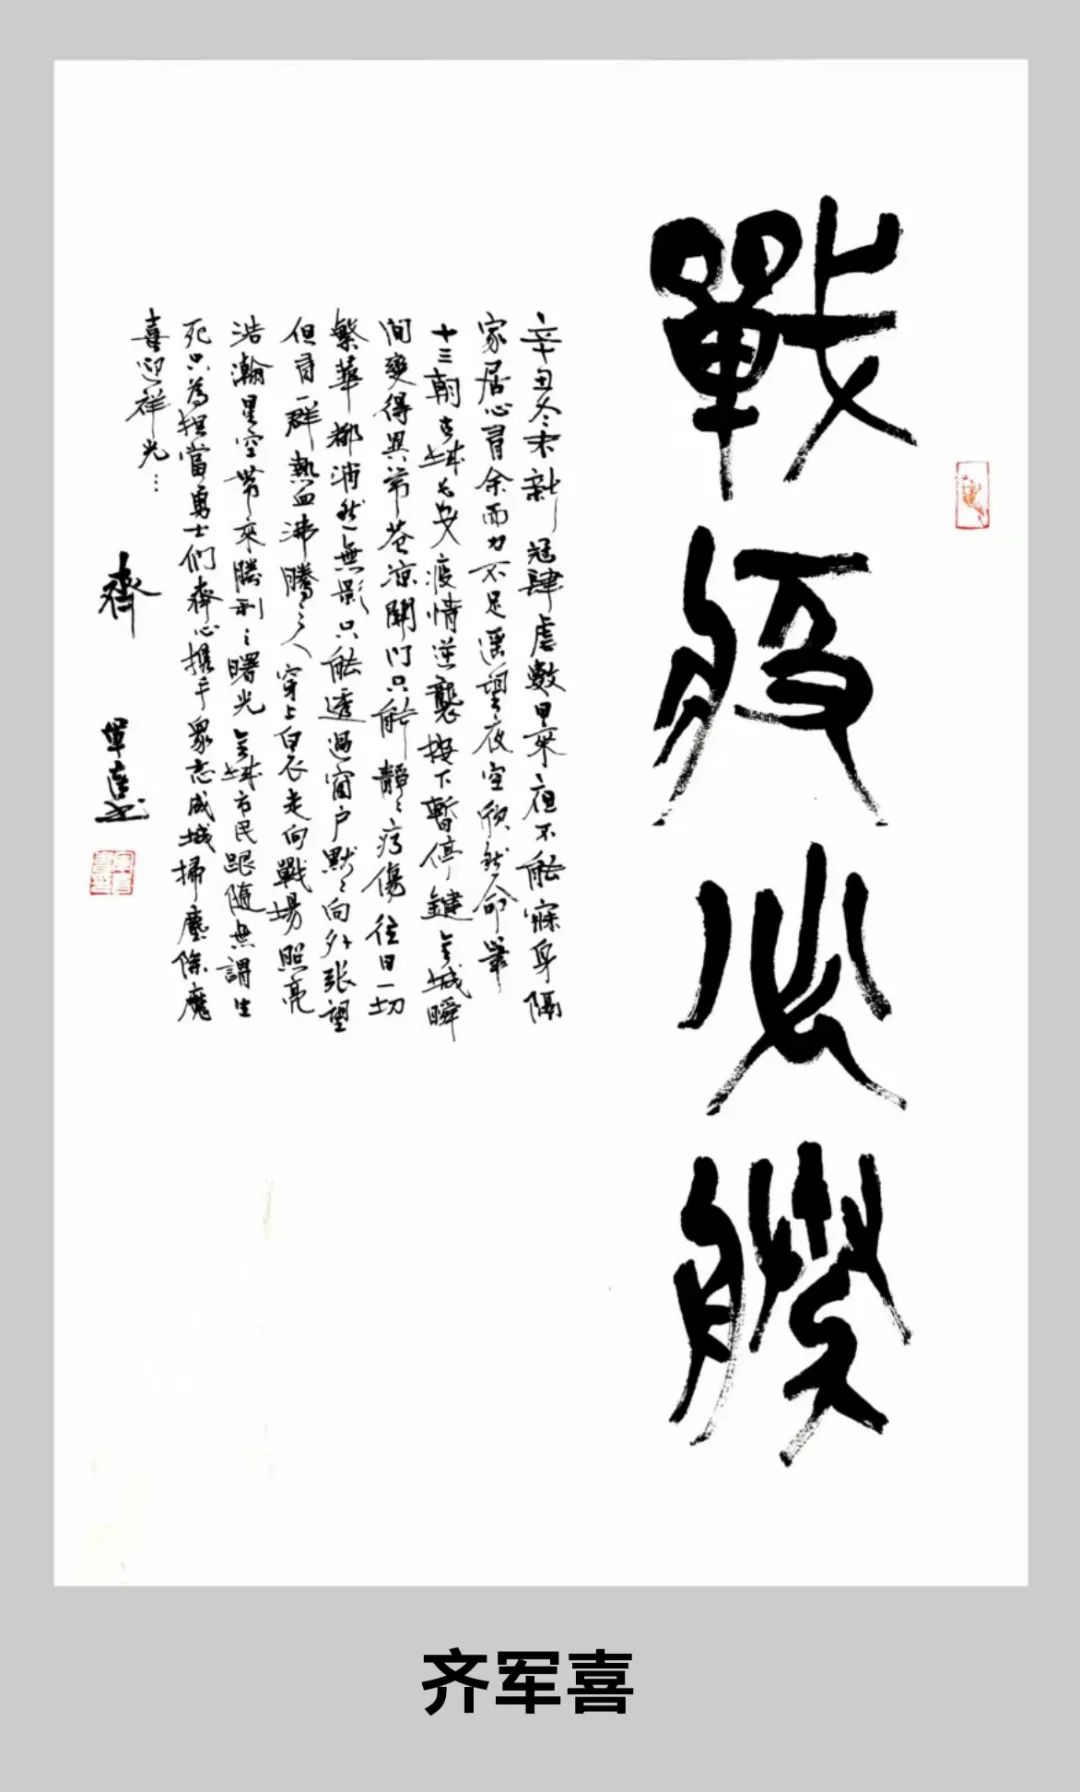 戰疫必勝
辛丑冬末新冠肆虐數日來夜不能寐身隔
家居心有余而力不足遥望夜空欣然命筆
十三朝古城長安疫情逆襲按下暫停鍵全城瞬
间變得異常苍凉閉门只能靜靜疗傷往日一切
繁華都消然無影只能透過窗户默默向外张望
但有一群熱血沸騰之人穿上白衣走向戰場照亮
浩瀚星空带來勝利之曙光全城市民跟随無謂生
死只為担當勇士们齊心携手眾志成城掃塵除魔
喜迎祥光…
齊軍喜
齐军喜